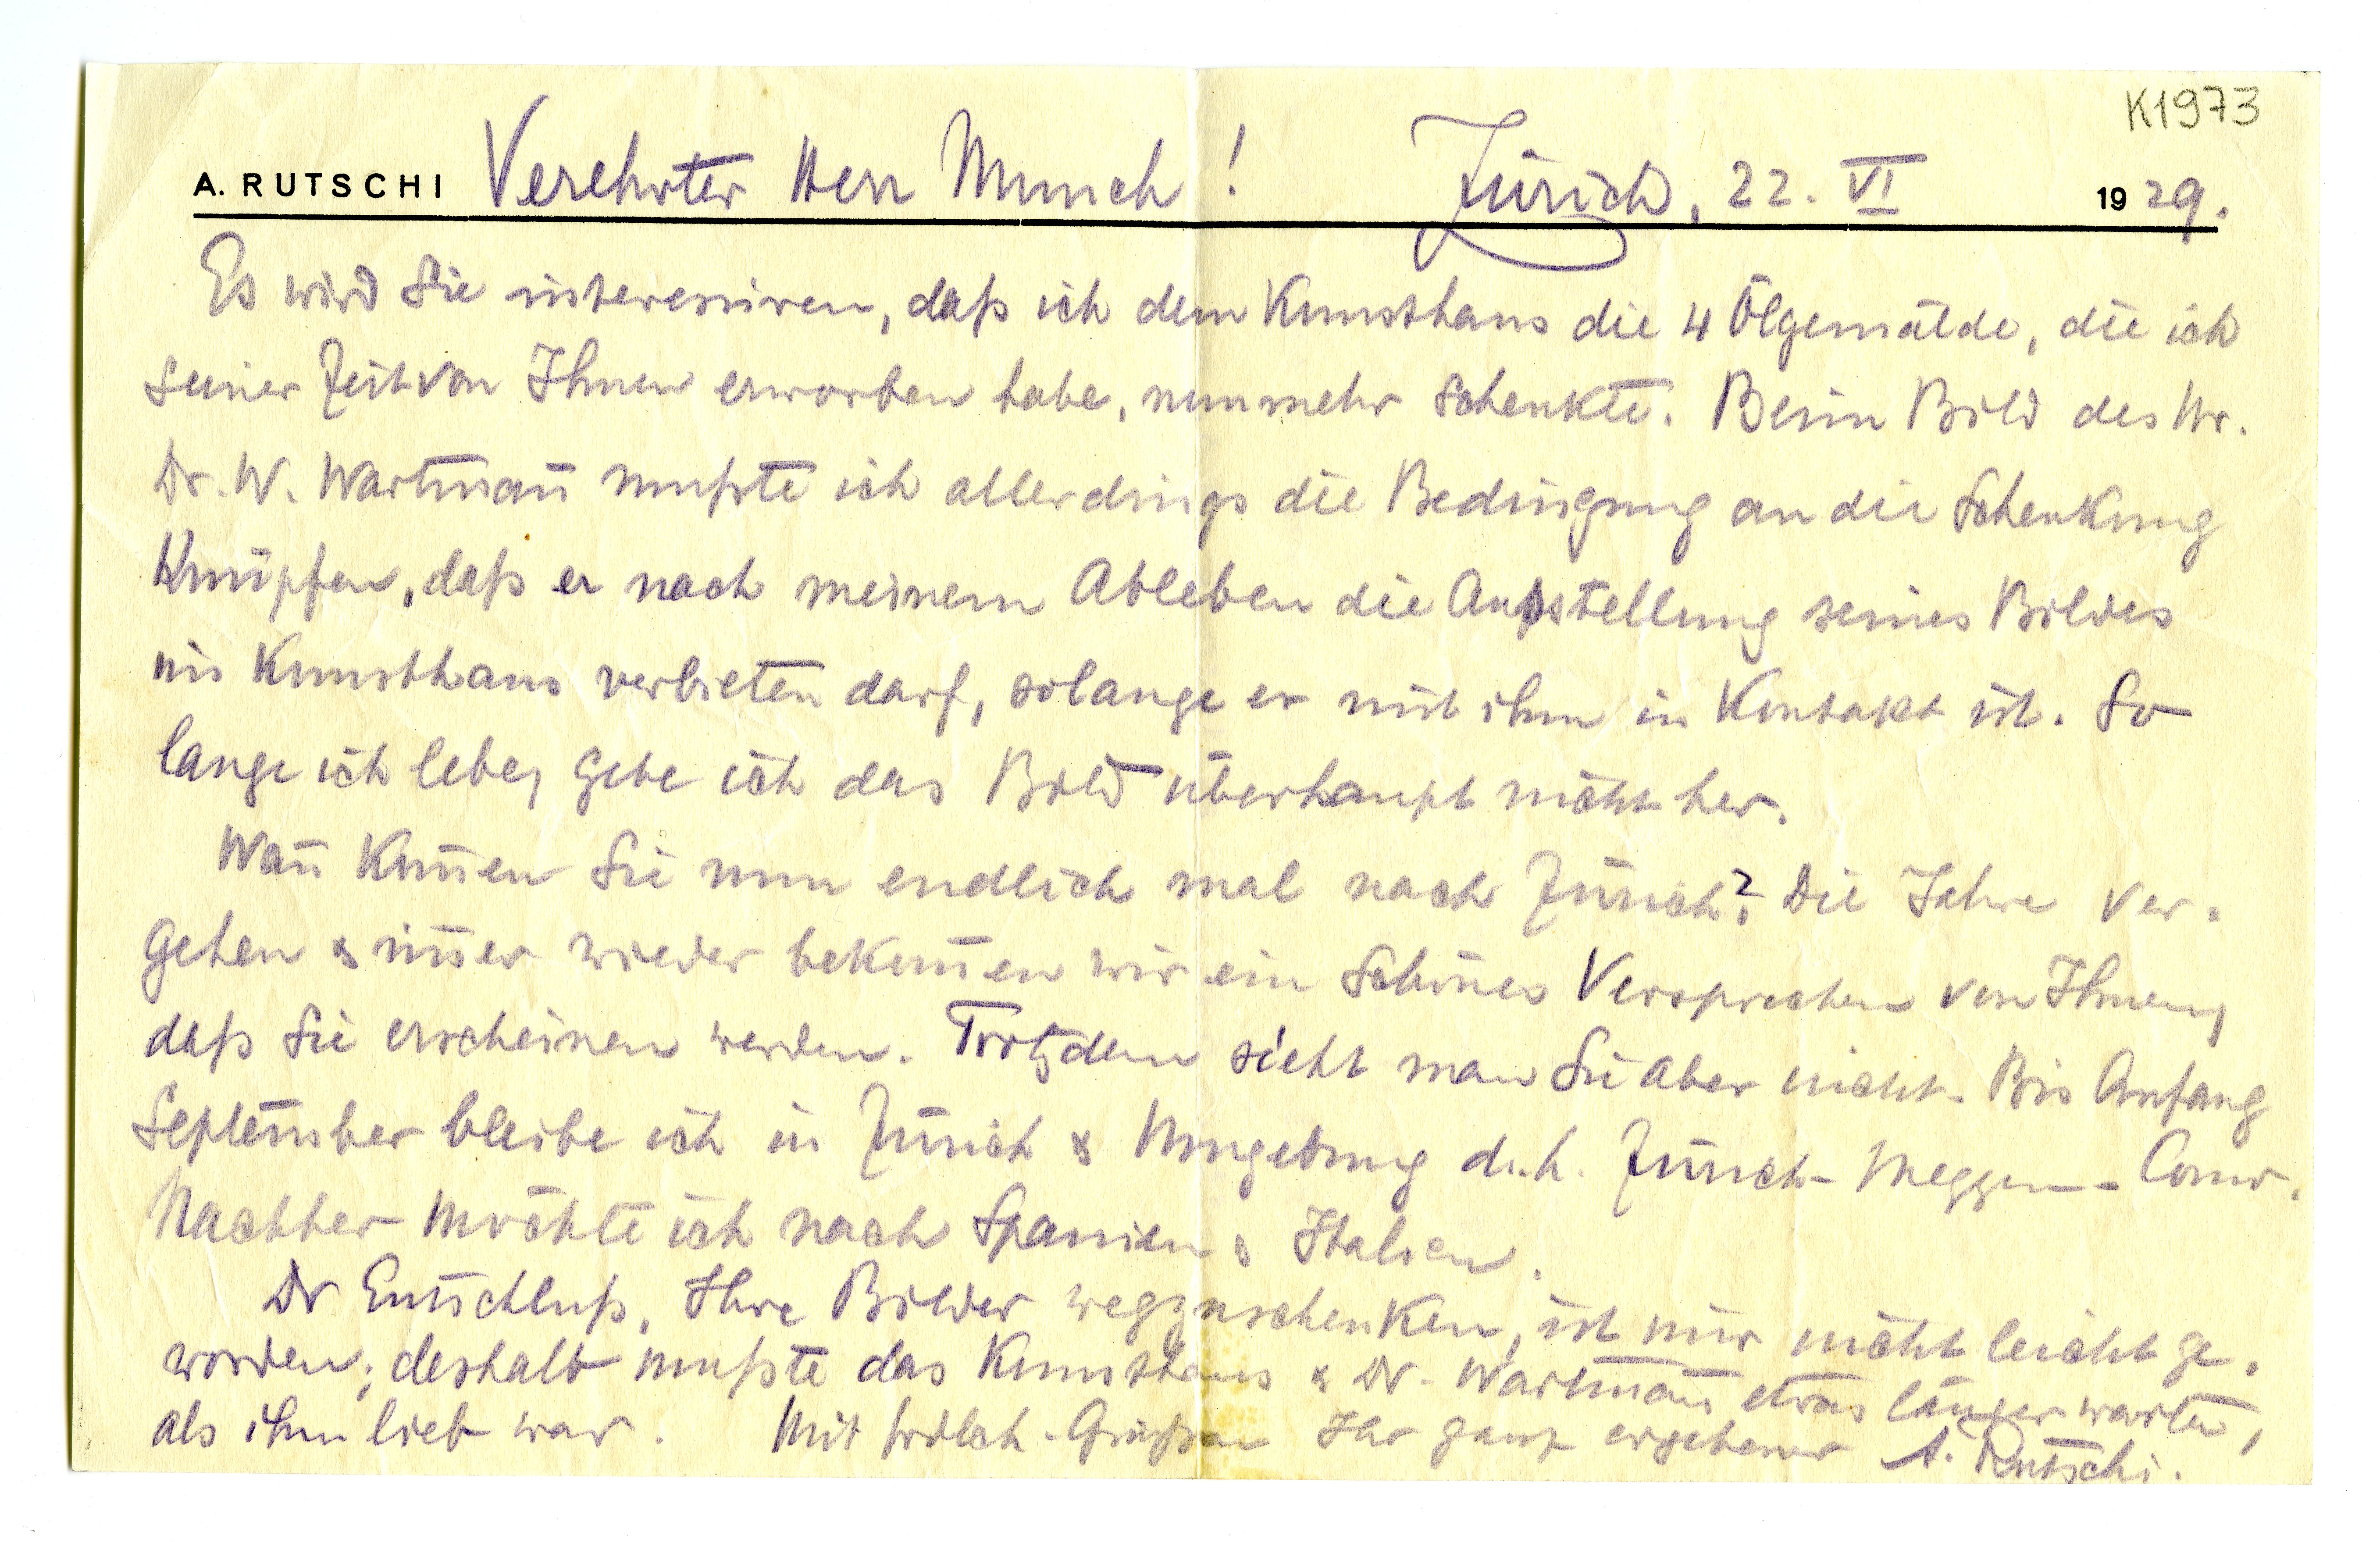 K1973
A. RUTSCHI Verehrter Herr Munch! Zürich, 22. VI 1929.
Es wird Sie interessiren, daß ich dem Kunsthaus die 4 Ölgemälde, die ich
seiner Zeit von Ihnen erworben habe, nunmehr schenkte. Beim Bild des Hr.
Dr. W. Wartman̄ mußte ich allerdings die Bedingung an die Schenkung
Knüpfen, daß er nach meinem Ableben die Ausstellung seines Bildes
im Kunsthaus verbieten darf, solange er mit ihm in Kontakt ist. So
lange ich lebe, gebe ich das Bild überhaupt nicht her.
Wan̄ Kom̄en Sie nun endlich mal nach Zürich? Die Jahre ver-
gehen & im̄er wieder bekom̄en wir ein schönes Versprechen von Ihnen,
daß Sie erscheinen werden. Trotzdem sieht man Sie aber nicht. Bis Anfang
September bleibe ich in Zürich & Umgebung d.h. Zürich - Meggen -
Nachher möchte ich nach Spanien & Italien.
Dr Entschluß, Ihre Bilder wegzuschenken, ist mir nicht leicht ge-
worden; deshalb mußte das Kunsthaus & Dr. Wartman̄ etwas länger warten,
als ihm lieb war. Mit frdlch. Grüßen Ihr ganz ergebener A. Rütschi.